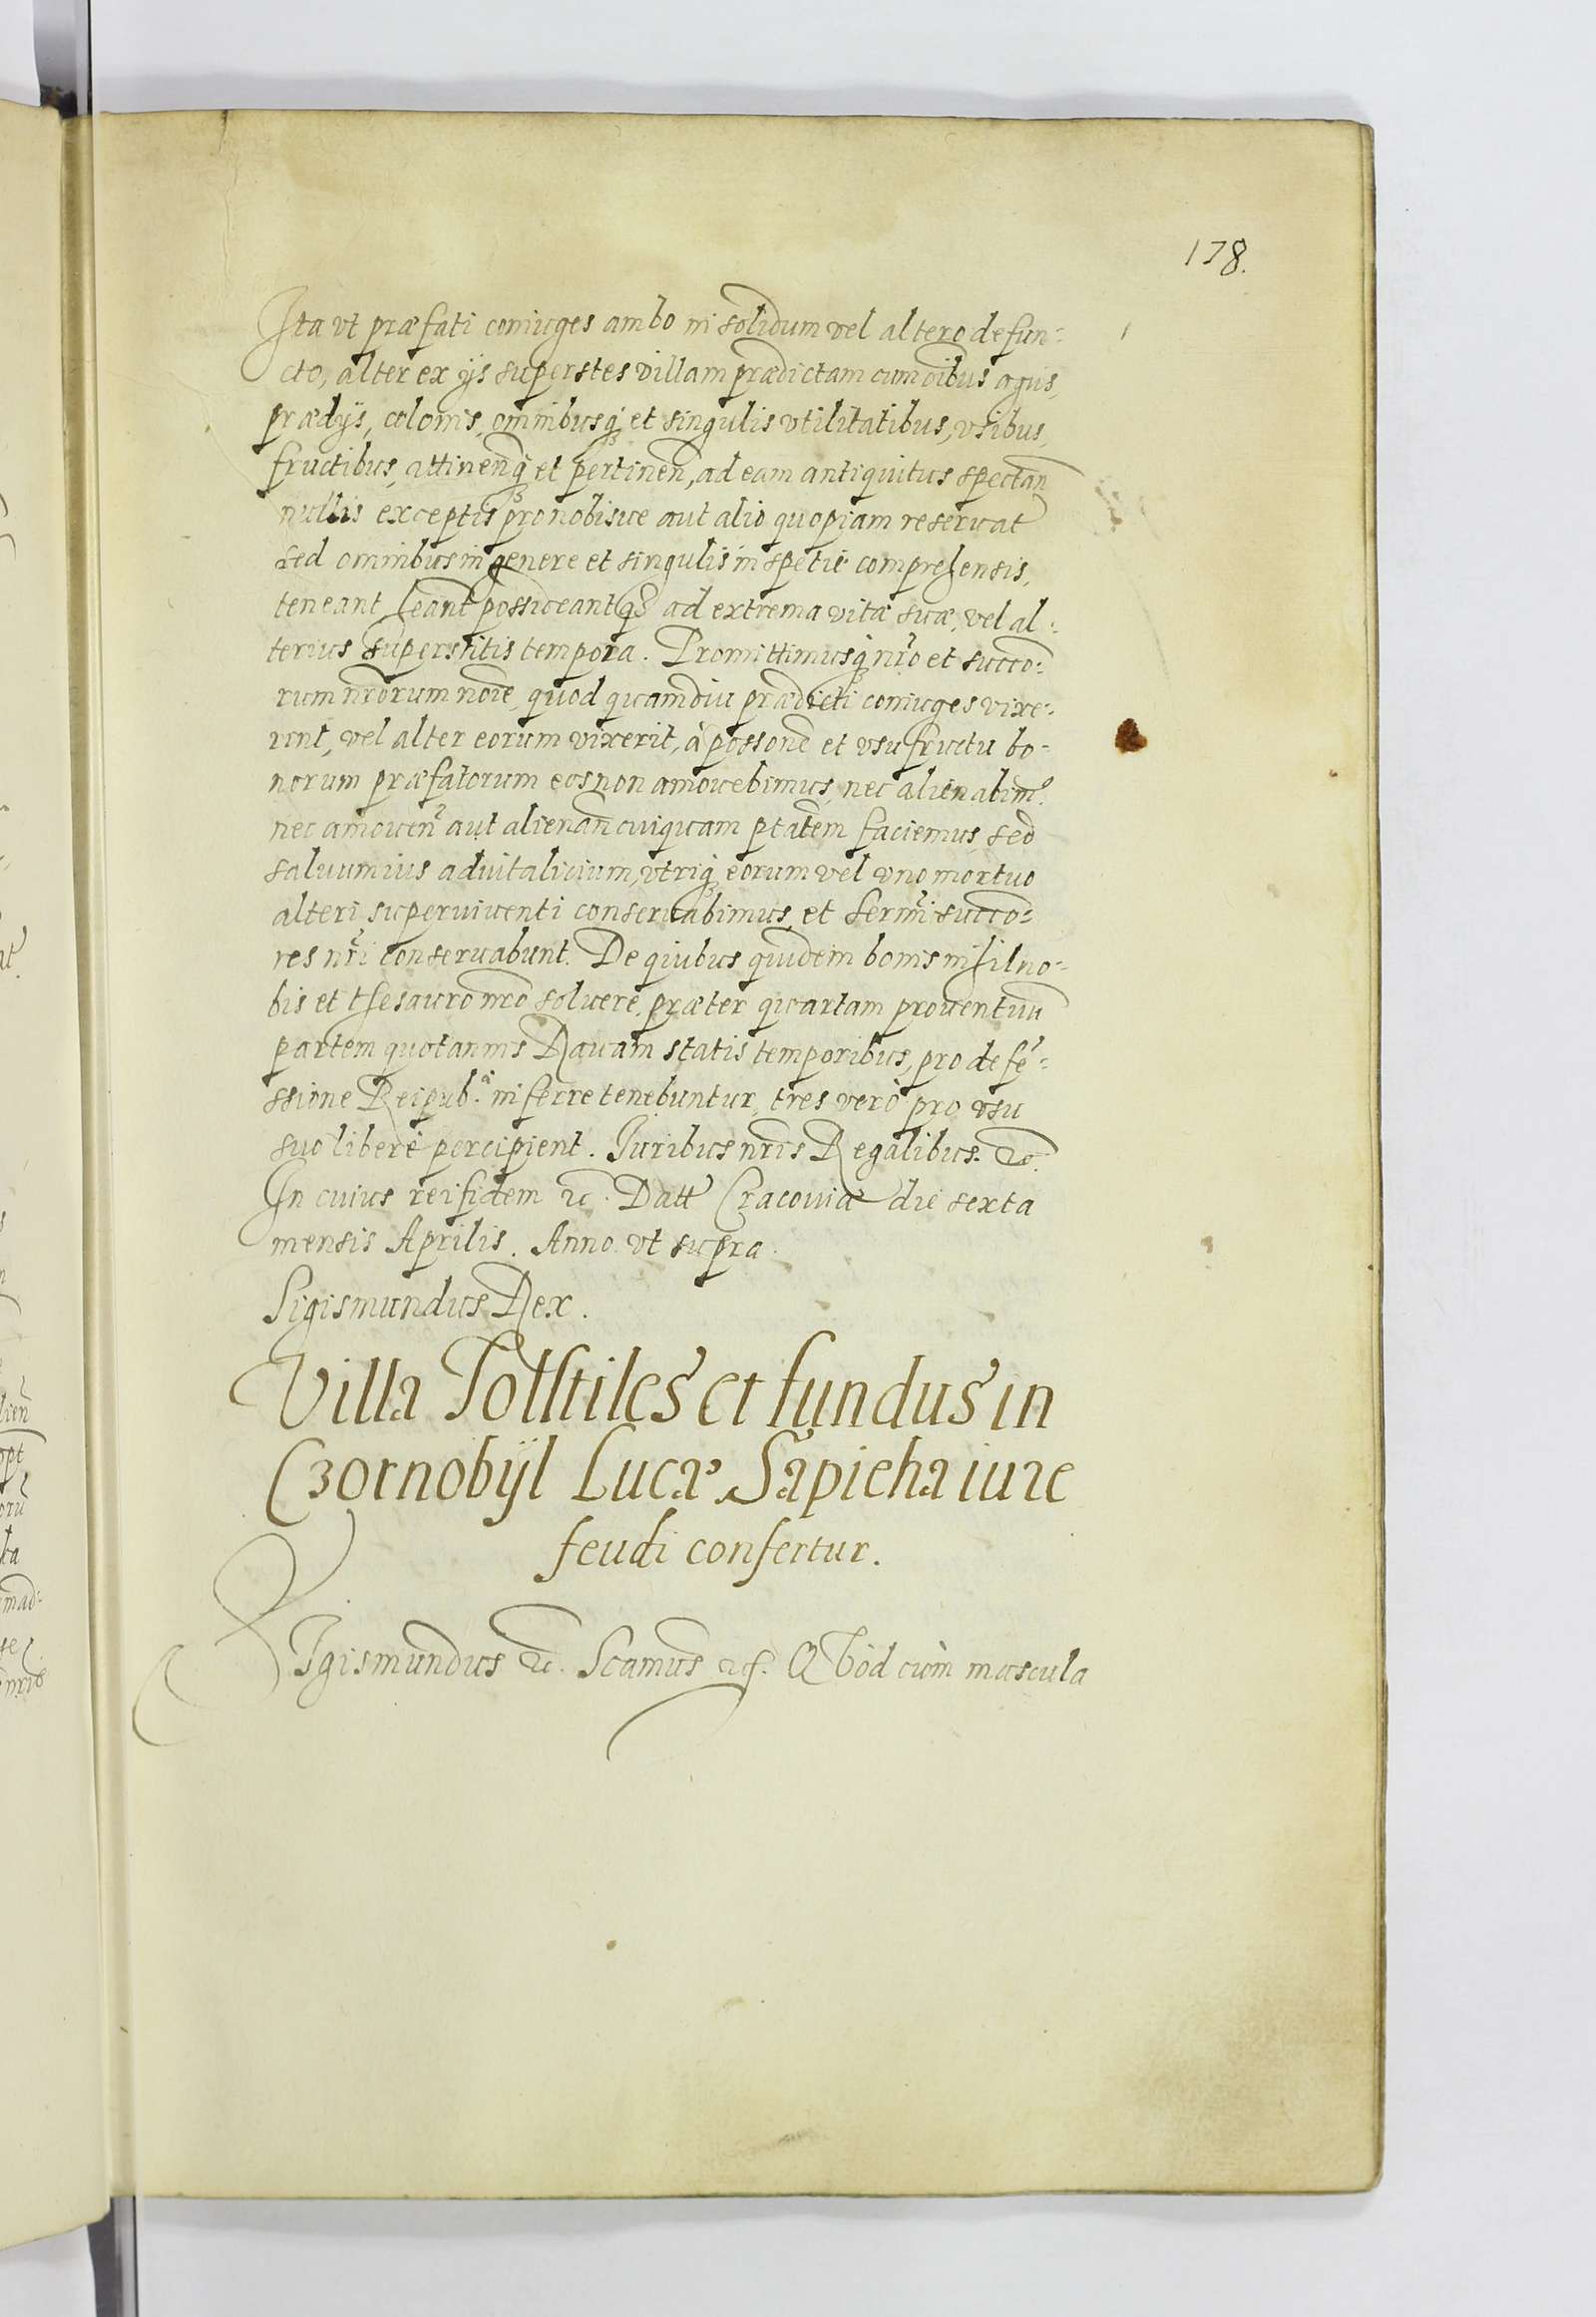 178.
Ita vt præfati coniuges ambo in solidum vel altero defun-
cto, alter ex ijs superstes villam prædictam cum oĩbus agris,
prædijs, colonis, omnibusq₃ et singulis vtilitatibus, vsibus,
fructibus, attinenq₃ et pertinen̄, ad eam antiquitus spectan̄
nullis exceptis pro nobisue aut alio quopiam reseruat
sed omnibus in genere et singulis in spetie comprehensis,
teneant heant possideantq₃ ad extrema vitæ suæ, vel al-
terius superstitis tempora. Promittimusq₃ nr̃o et succo-
rum nr̃orum noĩe, quod quamdiu prædicti coniuges vixe-
rint, vel alter eorum vixerit, à posson̄e et vsufructu bo-
norum præfatorum eos non amouebimus, nec alienabim⁹.
nec amouen̄ aut alienan̄ cuiquam ptãtem faciemus, sed
saluum ius aduitalicium, vtriq₃ eorum vel vno mortuo
alteri superuiuenti conseruabimus, et Serm̃i succo-
res nr̃i conseruabunt. De quibus quidem bonis nihil no-
bis et thesauro nr̃o soluere, præter quartam prouentuũ
partem quotannis Rauam statis temporibus, pro defẽ-
ssione Reipub.ᵃ inferre tenebuntur, tres verò pro vsu
suo liberè percipient. Iuribus nr̃is Regalibus. &c.
In cuius rei fidem &c. Datt Cracouiæ die sexta
mensis Aprilis. Anno vt supra.
Sigismundus Rex.
Villa Tolstiles et fundus in
Czornobÿl Lucæ Sapieha iure
feudi confertur.
SIgismundus &c. Scamus &c. QVod cùm mascula